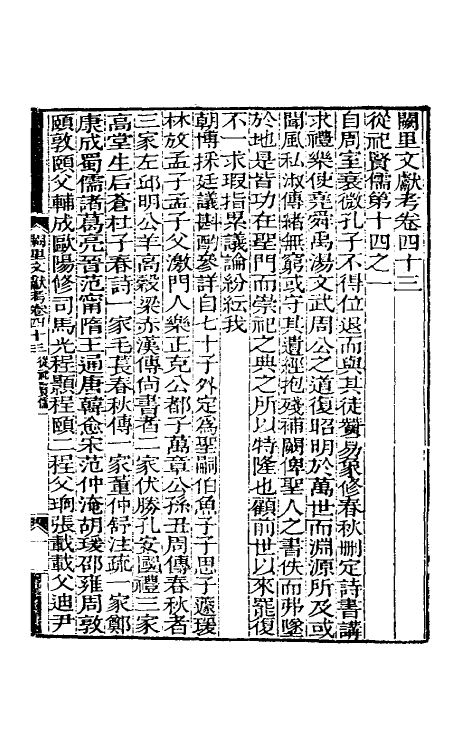 闕里文獻考卷四十三
從祀賢儒第十四之一
自周室衰微孔子不得位退而與其徒贊易象修春秋刪定詩書講
求禮樂使堯舜禹湯文武周公之道復昭明於萬世而淵源所及或
聞風私淑傳緒無窮或守其遺經抱殘補闕俾聖人之書佚而弗墜
於地是皆功在聖門而崇祀之典之所以特隆也顧前世以來罷復
不一求瑕指累議論紛紜我
朝博採廷議斟酌參詳自七十子外定為聖嗣伯魚子子思子蘧瑗
林放孟子孟子父激門人樂正克公都子萬章公孫丑周傳春秋者
三家左邱明公羊高穀梁赤漢傳尚書者二家伏勝孔安國禮三家
高堂生后蒼杜子春詩一家毛萇春秋傳一家董仲舒注疏一家鄭
康成蜀儒諸葛亮晉范甯隋王通唐韓愈宋范仲淹胡瑗邵雍周敦
頤敦頤父輔成歐陽修司馬光程顥程頤二程父珦張載載父迪尹
闕里文獻考卷四十三 從祀賢儒